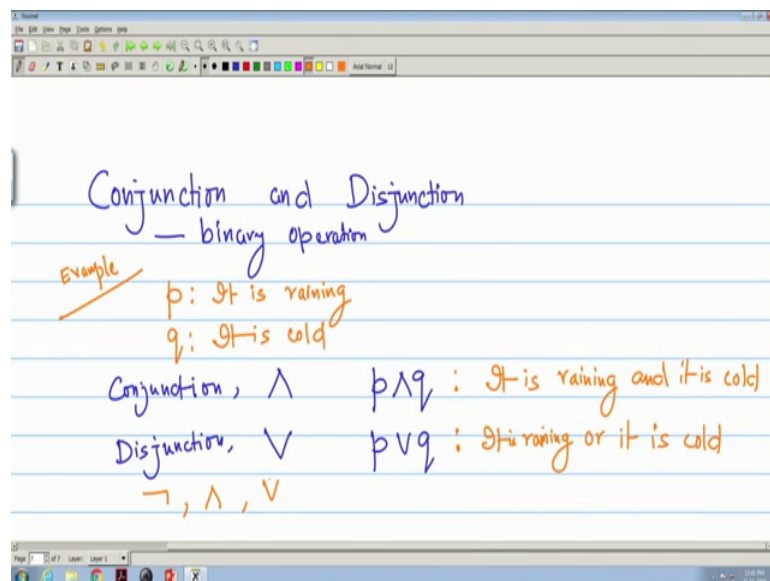 Journal
File Edit View Page Tools Options Help
Arial Normal 12
Conjunction and Disjunction
— binary operation
Example
p: It is raining
q: It is cold
Conjunction, ∧ p∧q : It is raining and it is cold
Disjunction, ∨ p∨q : It is raining or it is cold
¬, ∧, ∨
Page 7 of 7 Layer: Layer 1